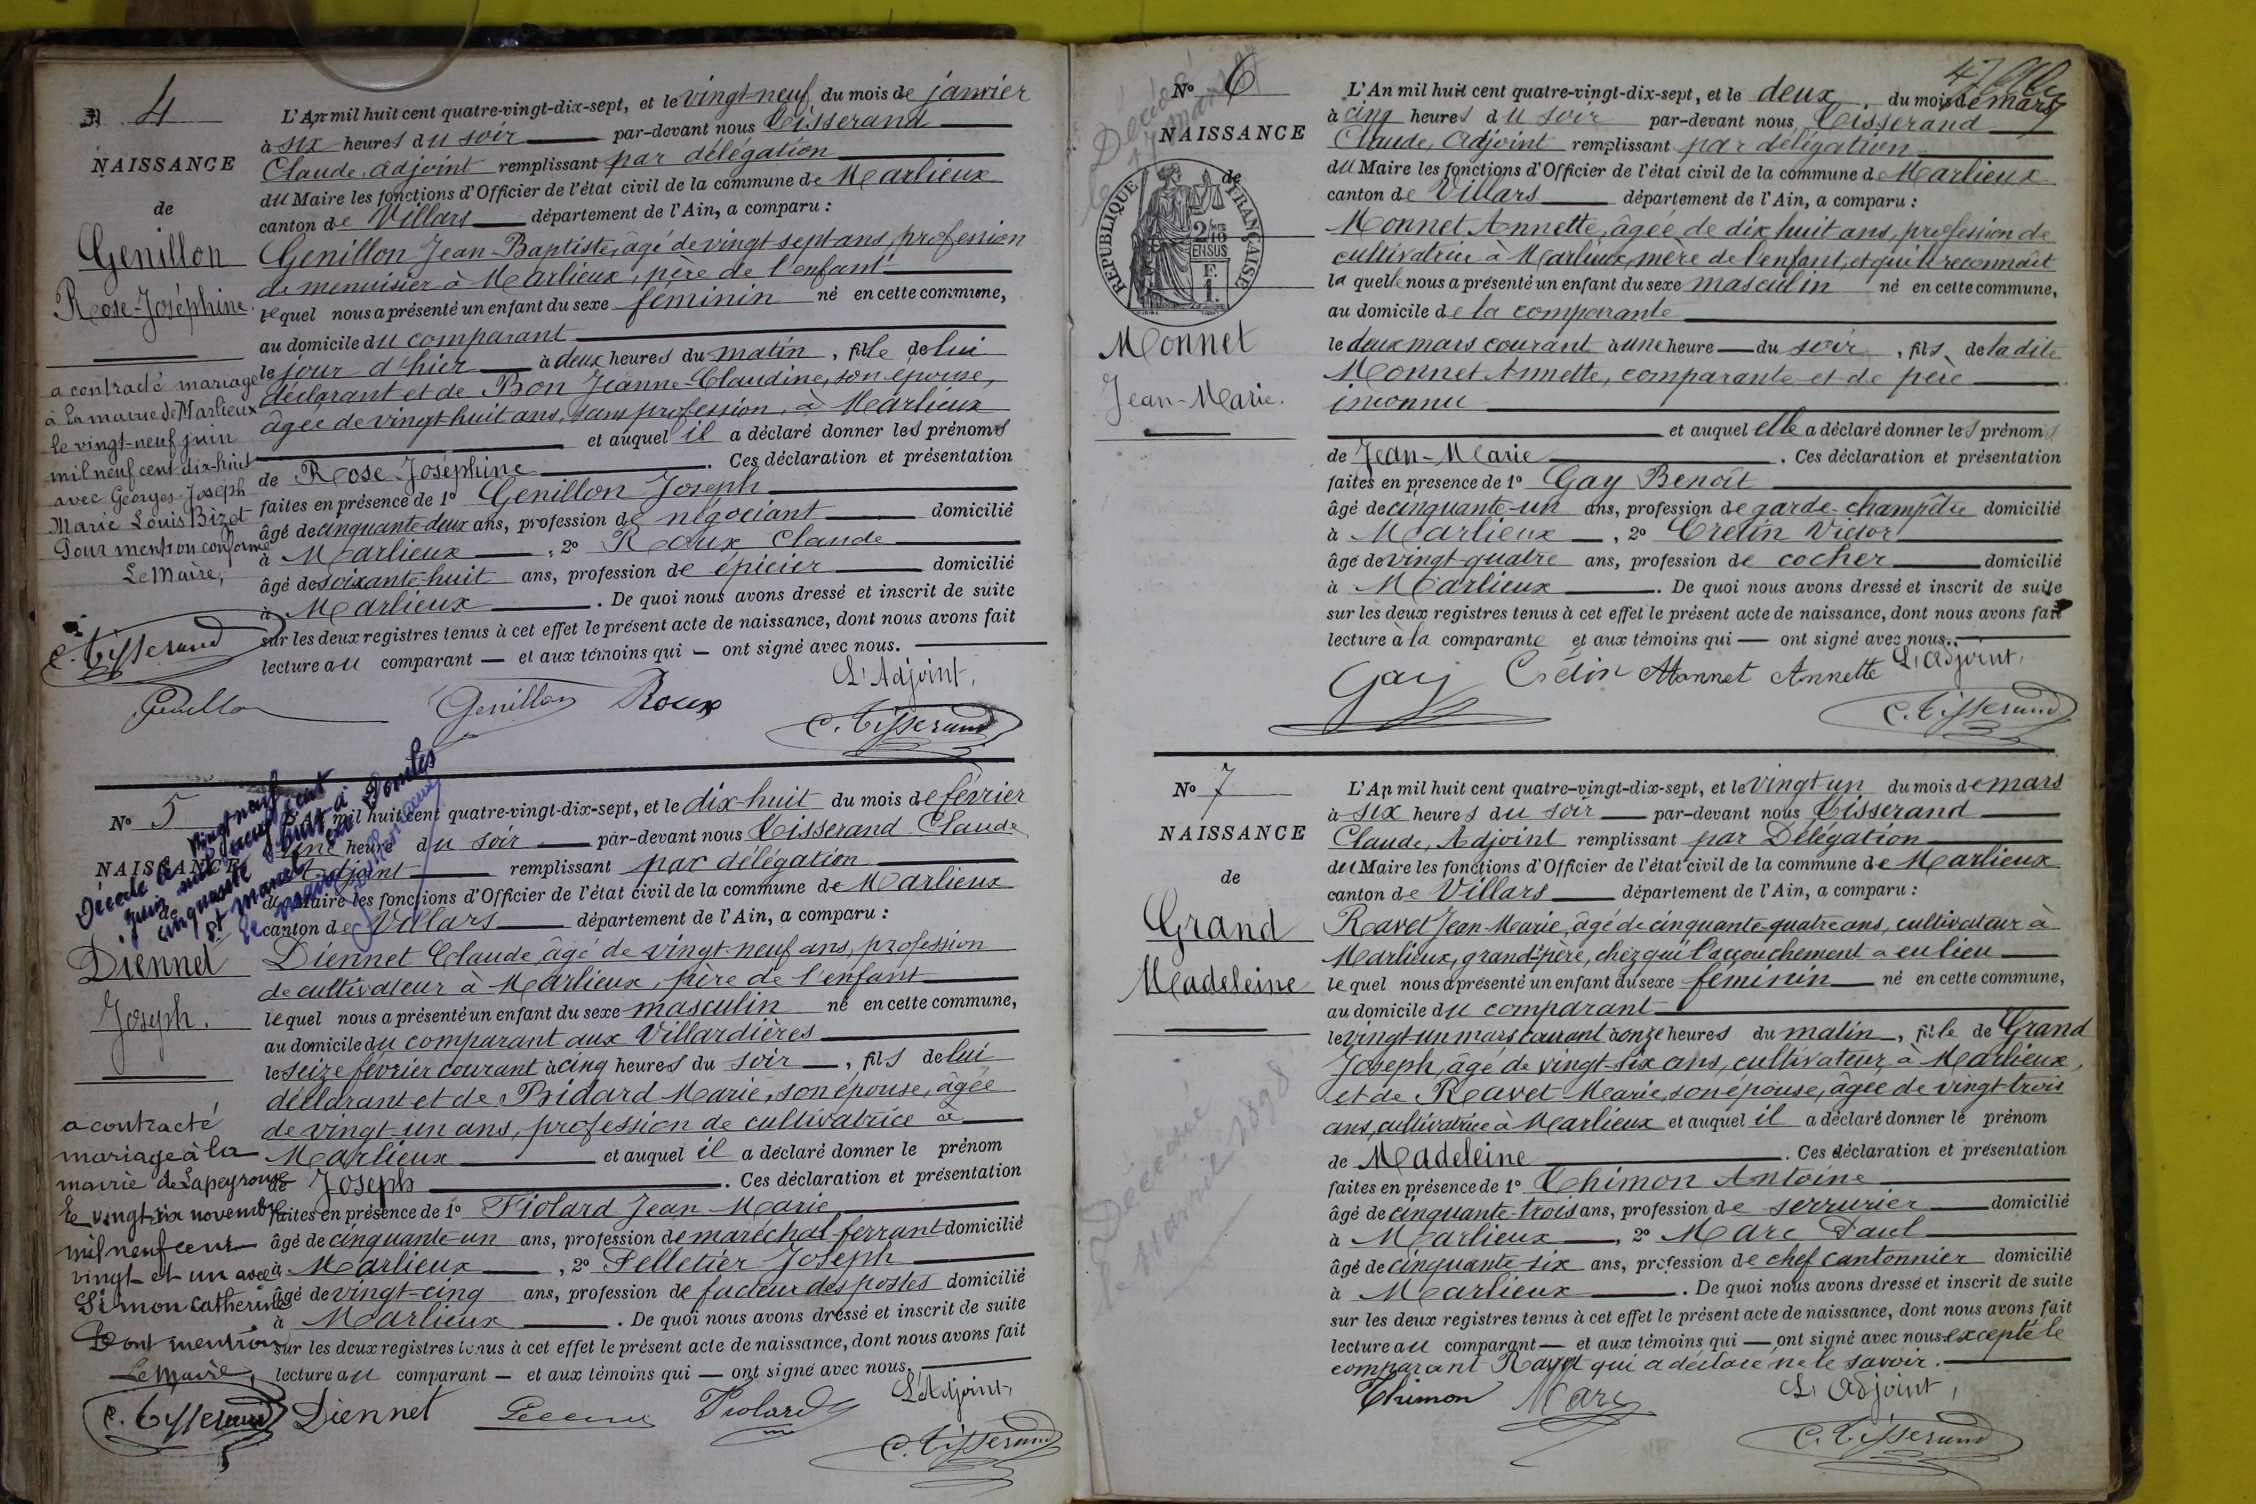 N° 4
NAISSANCE
de
Genillon
Rose-Joséphine.
a contracté mariage
à la mairie de Marlieux
le vingt-neuf juin
mil neuf cent dix-huit
avec Georges-Joseph
Marie Louis Bizot
Pour mention conforme
Le Maire,
C. Tisserand
L'An mil huit cent quatre-vingt-dix-sept, et le vingt-neuf du mois de janvier
à six heures du soir par-devant nous Tisserand
Claude, adjoint remplissant par délégation
du Maire les fonctions d'Officier de l'état civil de la commune de Marlieux
canton de Villars département de l'Ain, a comparu :
Genillon Jean-Baptiste, âgé de vingt sept ans, profession
de menuisier à Marlieux, père de l'enfant
lequel nous a présenté un enfant du sexe féminin né en cette commune,
au domicile du comparant
le jour d'hier à deux heures du matin, fille de lui
déclarant et de Bon Jeanne-Claudine, son épouse,
âgée de vingt-huit ans, sans profession, à Marlieux
et auquel il a déclaré donner les prénoms
de Rose Joséphine. Ces déclaration et présentation
faites en présence de 1° Genillon Joseph
âgé de cinquante-deux ans, profession de négociant domicilié
à Marlieux, 2° Roux Claude
âgé de soixante-huit ans, profession de épicier domicilié
à Marlieux. De quoi nous avons dressé et inscrit de suite
sur les deux registres tenus à cet effet le présent acte de naissance, dont nous avons fait
lecture au comparant — et aux témoins qui — ont signé avec nous.
L'Adjoint,
Genillon Genillon Roux
C. Tisserand
N° 5
NAISSANCE
de
Décédé le vingt neuf
juin mil neuf cent
cinquante huit à
St Marcel
Diennet
Joseph.
a contracté
mariage à la
mairie de Lapeyrouse
le vingt-six novembre
mil neuf cent
vingt et un avec
Simon Catherine
Dont mention
Le Maire,
C. Tisserand
L'An mil huit cent quatre-vingt-dix-sept, et le dix-huit du mois de février
à une heure du soir par-devant nous Tisserand Claude
Adjoint remplissant par délégation
du Maire les fonctions d'Officier de l'état civil de la commune de Marlieux
canton de Villars département de l'Ain, a comparu :
Diennet Claude, âgé de vingt-neuf ans, profession
de cultivateur à Marlieux, père de l'enfant
lequel nous a présenté un enfant du sexe masculin né en cette commune,
au domicile du comparant aux Villardières
le seize février courant à cinq heures du soir, fils de lui
déclarant et de Bidard Marie, son épouse, âgée
de vingt-un ans, profession de cultivatrice à
Marlieux et auquel il a déclaré donner le prénom
de Joseph. Ces déclaration et présentation
faites en présence de 1° Piolard Jean Marie
âgé de cinquante-un ans, profession de maréchal-ferrant domicilié
à Marlieux, 2° Pelletier Joseph
âgé de vingt-cinq ans, profession de facteur des postes domicilié
à Marlieux. De quoi nous avons dressé et inscrit de suite
sur les deux registres tenus à cet effet le présent acte de naissance, dont nous avons fait
lecture au comparant — et aux témoins qui — ont signé avec nous.
L'Adjoint,
Diennet Piolard
C. Tisserand
N° 6
NAISSANCE
de
Décédé
RÉPUBLIQUE FRANÇAISE
Monnet
Jean-Marie.
L'An mil huit cent quatre-vingt-dix-sept, et le deux du mois de mars
à cinq heures du soir par-devant nous Tisserand
Claude, Adjoint remplissant par délégation
du Maire les fonctions d'Officier de l'état civil de la commune de Marlieux
canton de Villars département de l'Ain, a comparu :
Monnet Annette, âgée de dix huit ans, profession de
cultivatrice à Marlieux, mère de l'enfant, et qui le reconnaît
laquelle nous a présenté un enfant du sexe masculin né en cette commune,
au domicile de la comparante
le deux mars courant à une heure du soir, fils de la dite
Monnet Annette, comparante et de père
inconnu
et auquel elle a déclaré donner les prénoms
de Jean-Marie. Ces déclaration et présentation
faites en présence de 1° Gay Benoît
âgé de cinquante-un ans, profession de garde-champêtre domicilié
à Marlieux, 2° Cretin Victor
âgé de vingt-quatre ans, profession de cocher domicilié
à Marlieux. De quoi nous avons dressé et inscrit de suite
sur les deux registres tenus à cet effet le présent acte de naissance, dont nous avons fait
lecture à la comparante et aux témoins qui — ont signé avec nous.
Gay Crétin Monnet Annette L'Adjoint,
C. Tisserand
N° 7
NAISSANCE
de
Grand
Madeleine
Décédée
avril 1898
L'An mil huit cent quatre-vingt-dix-sept, et le vingt un du mois de mars
à six heures du soir par-devant nous Tisserand
Claude, Adjoint remplissant par Délégation
du Maire les fonctions d'Officier de l'état civil de la commune de Marlieux
canton de Villars département de l'Ain, a comparu :
Ravet Jean-Marie, âgé de cinquante-quatre ans, cultivateur à
Marlieux, grand-père, chez qui l'accouchement a eu lieu
lequel nous a présenté un enfant du sexe féminin né en cette commune,
au domicile du comparant
le vingt-un mars courant à onze heures du matin, fille de Grand
Joseph, âgé de vingt-six ans, cultivateur à Marlieux,
et de Ravet Marie, son épouse, âgée de vingt-trois
ans, cultivatrice à Marlieux et auquel il a déclaré donner le prénom
de Madeleine. Ces déclaration et présentation
faites en présence de 1° Thimon Antoine
âgé de cinquante-trois ans, profession de serrurier domicilié
à Marlieux, 2° Marc Paul
âgé de cinquante six ans, profession de chef cantonnier domicilié
à Marlieux. De quoi nous avons dressé et inscrit de suite
sur les deux registres tenus à cet effet le présent acte de naissance, dont nous avons fait
lecture au comparant — et aux témoins qui — ont signé avec nous excepté le
comparant Ravet qui a déclaré ne le savoir.
Thimon Marc L'Adjoint,
C. Tisserand